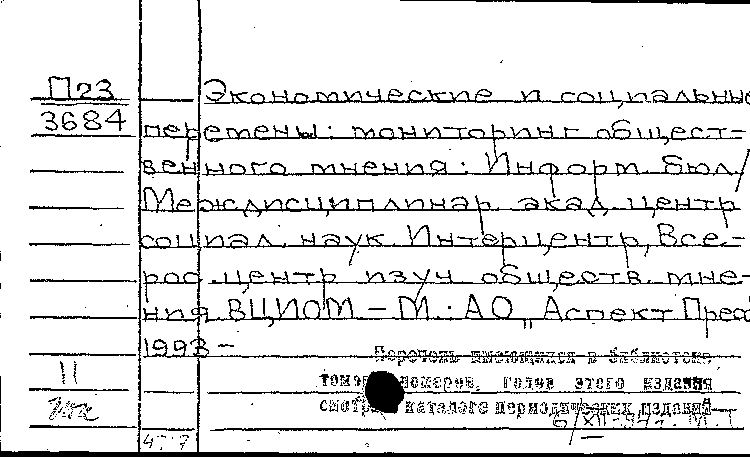 П23
3684
Экономические и социальные
перемены: мониторинг общест-
венного мнения: Информ. бюл./
Междисциплинар. акад. центр
социал. наук. Интерцентр, Все-
рос. центр изуч. обществ. мне-
ния ВЦИОМ – М.: АО „Аспект Прес
1993 –
Перечень имеющихся в библиотеке
томов, номеров, годов этого издания
смотри в каталоге периодических изданий
11
6/XII-94г. М.Т.